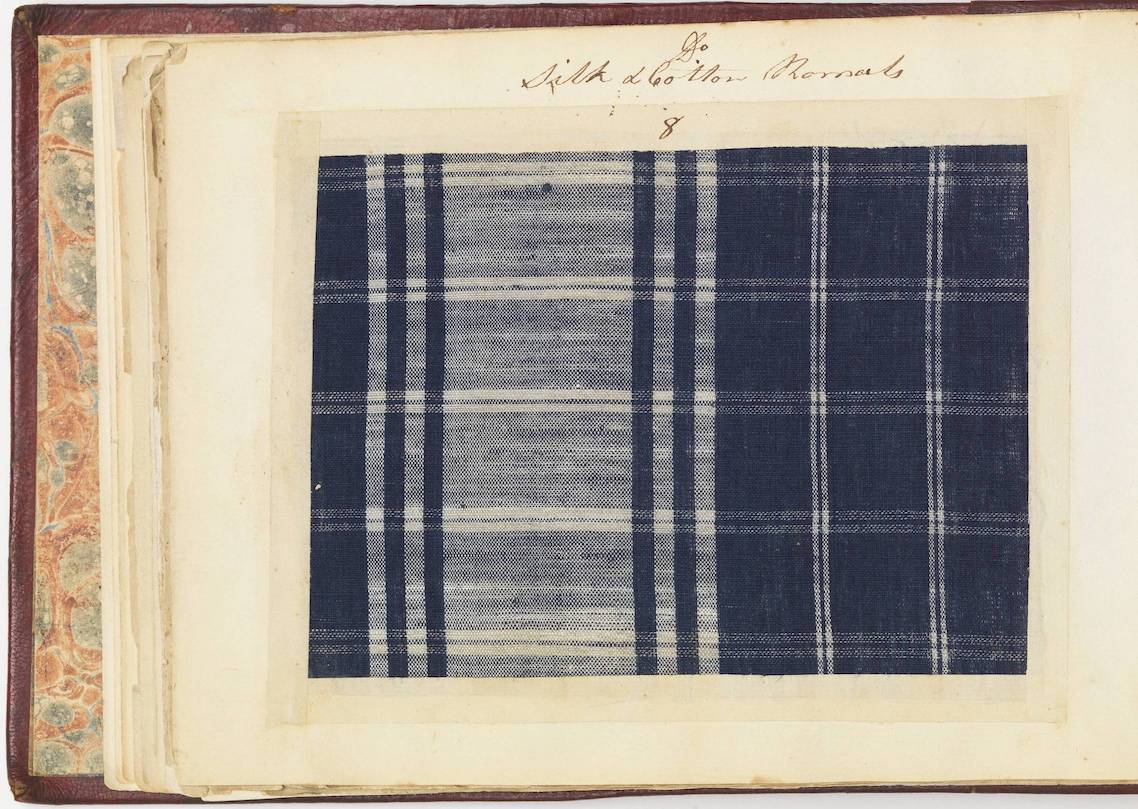 Do
Silk & Cotton Romals
8